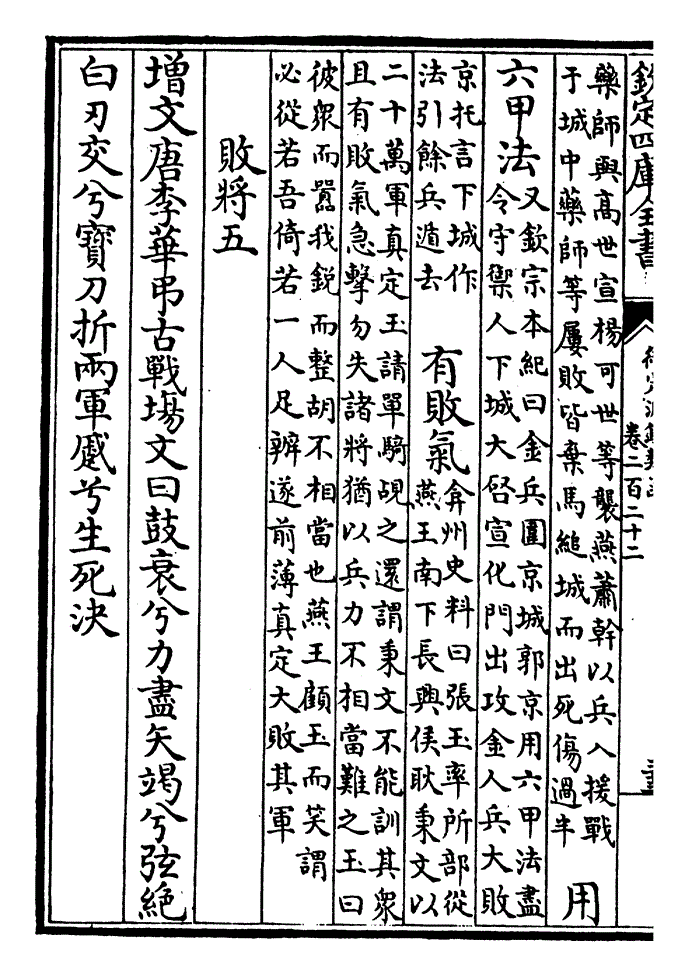 欽定四庫全書
卷二百二十二
藥師與高世宣楊可世等襲燕蕭幹以兵入援戰
于城中藥師等屢敗皆棄馬縋城而出死傷過半
用
六甲法
又欽宗本紀曰金兵圍京城郭京用六甲法盡
令守禦人下城大啓宣化門出攻金人兵大敗
京托言下城作
法引餘兵遁去
有敗氣
弇州史料曰張玉率所部從
燕王南下長興侯耿秉文以
二十萬軍真定玉請單騎覘之還謂秉文不能訓其衆
且有敗氣急擊勿失諸將猶以兵力不相當難之玉曰
彼衆而囂我鋭而整胡不相當也燕王顧玉而笑謂
必從若吾倚若一人足辨遂前薄真定大敗其軍
敗將五
增文唐李華弔古戰場文曰鼓衰兮力盡矢竭兮弦絶
白刃交兮寶刀折兩軍蹙兮生死決